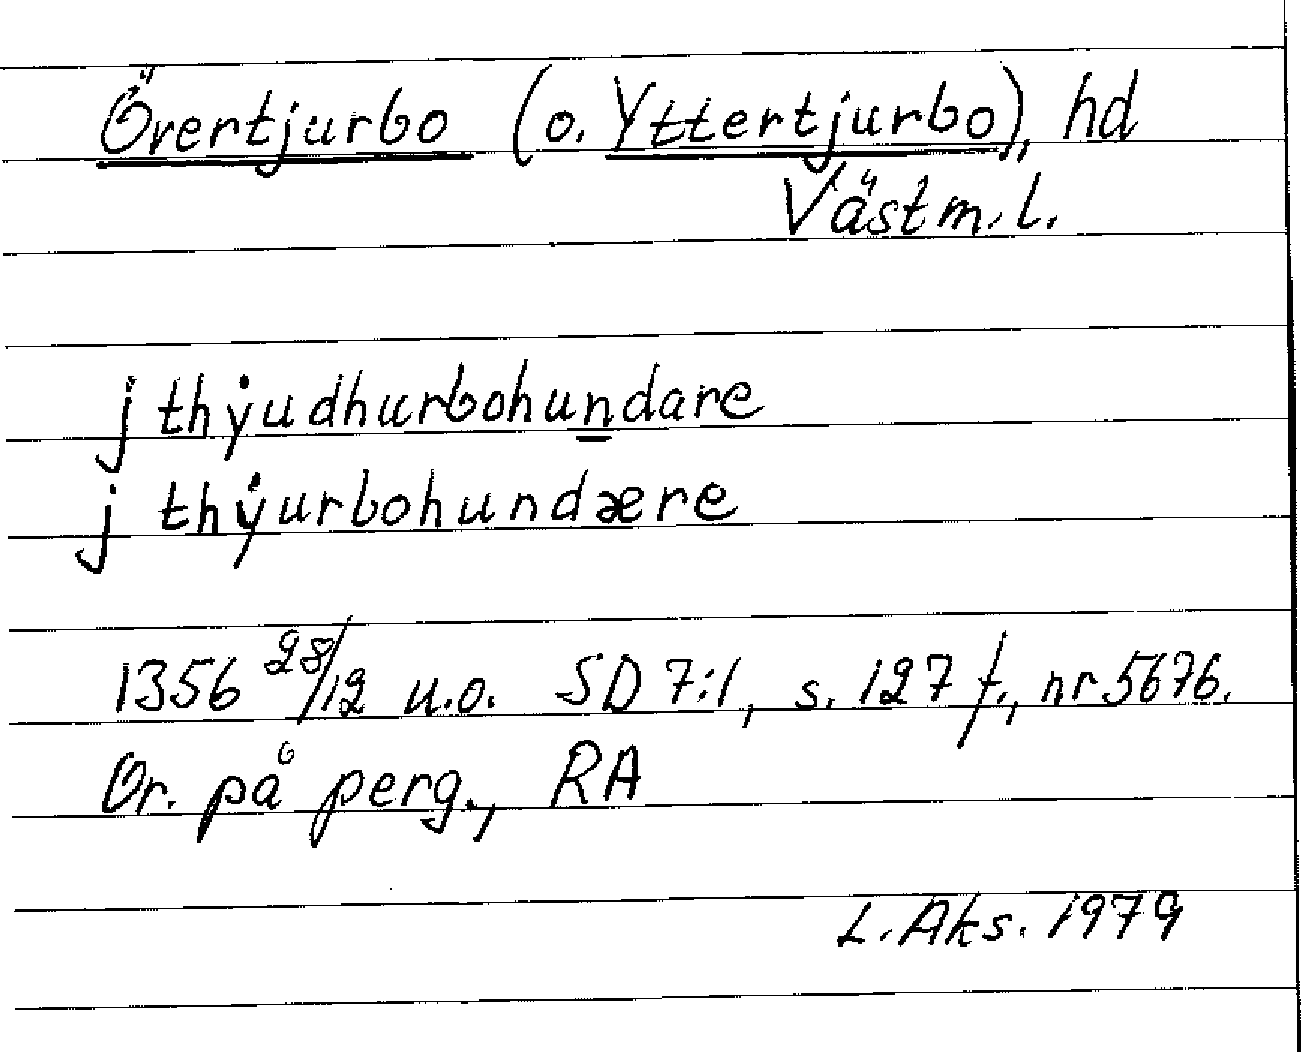 Övertjurbo (o. Yttertjurbo), hd
Västm. l.
j thẏudhurbohundare
j thẏurbohundære
1356 28/12 u.o. SD 7:1, s. 127 f., nr 5676.
Or. på perg., RA
L. Aks. 1979